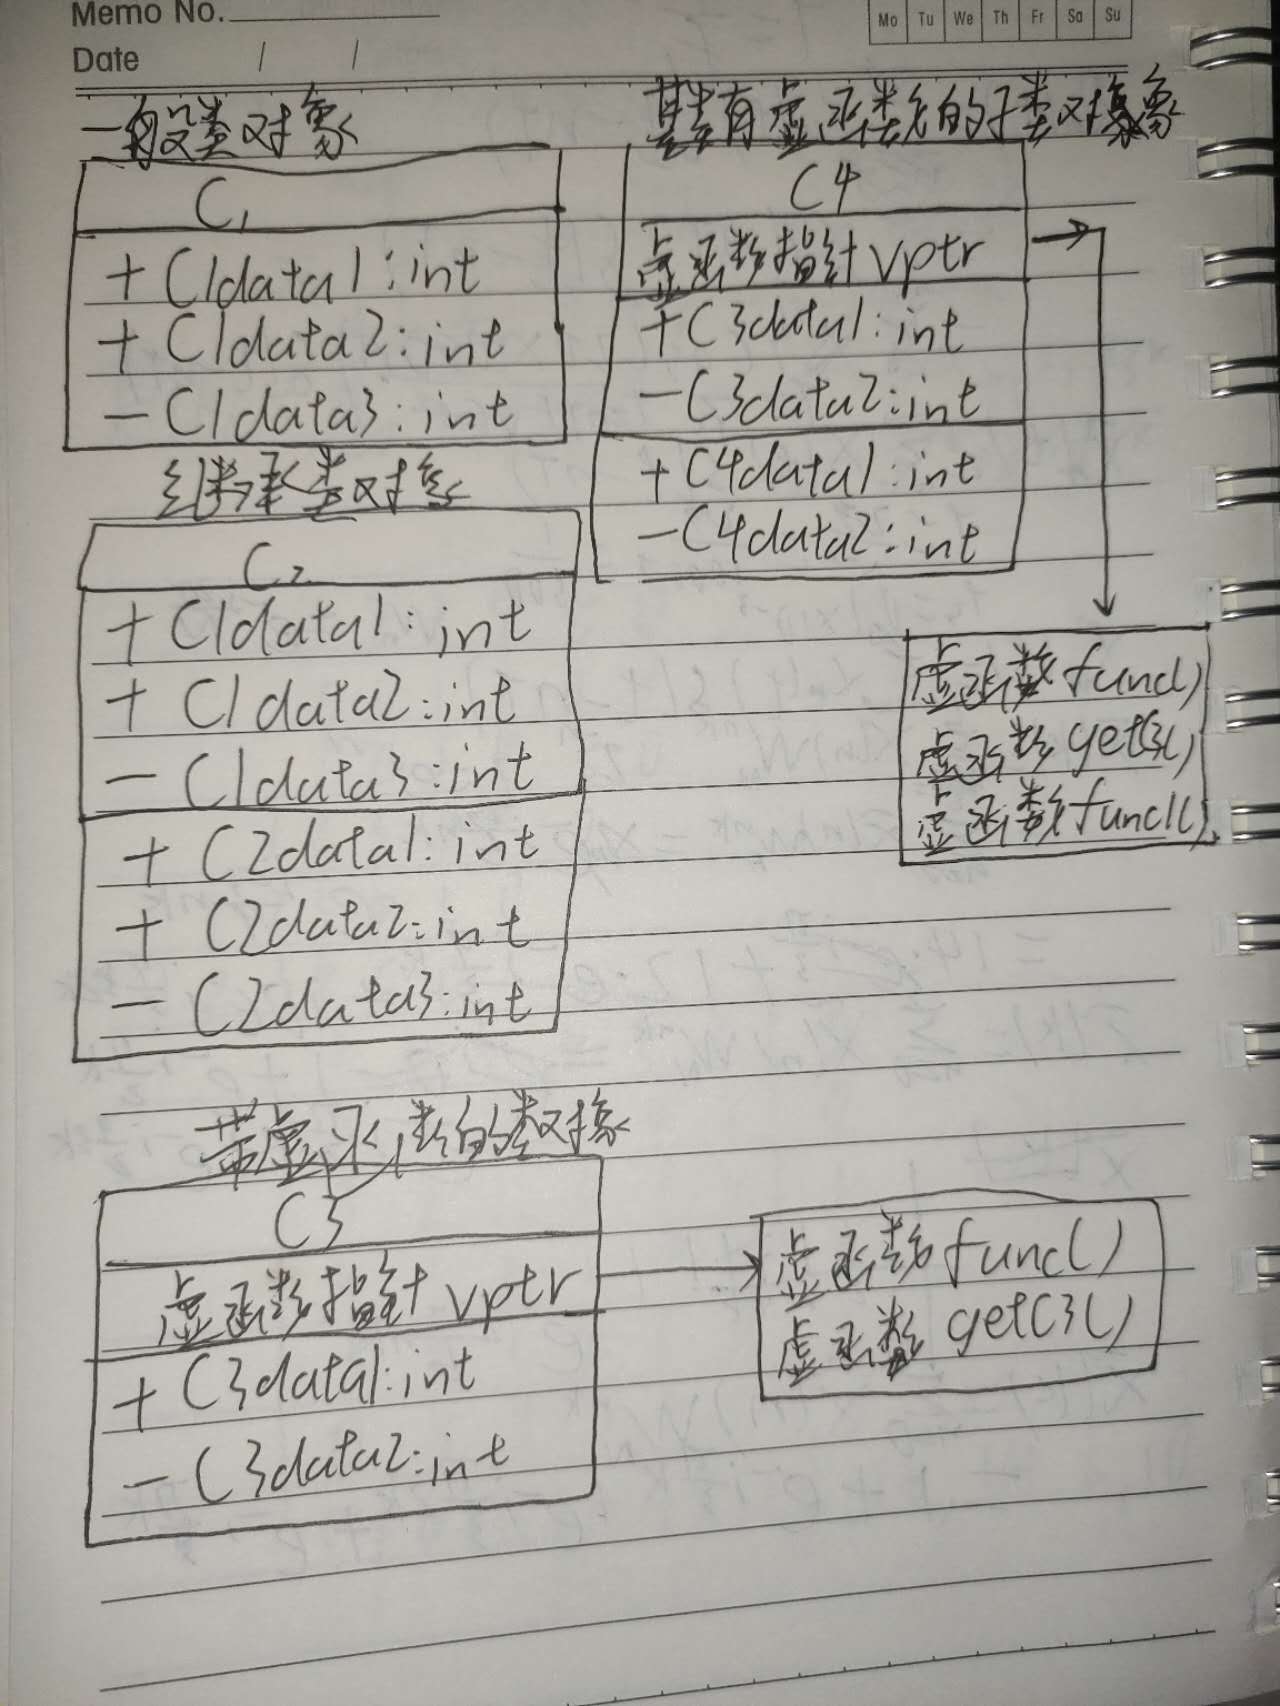 Memo No.
Mo Tu We Th Fr Sa Su
Date / /
一般类对象
C1
+ C1data1:int
+ C1data2:int
- C1data3:int
继承类对象
C2
+ C1data1:int
+ C1data2:int
- C1data3:int
+ C2data1:int
+ C2data2:int
- C2data3:int
有虚函数的子类对象
C4
虚函数指针vptr
+C3data1:int
-C3data2:int
+C4data1:int
-C4data2:int
虚函数func()
虚函数getC3()
虚函数func1()
带虚函数的类对象
C3
虚函数指针vptr
+ C3data1:int
- C3data2:int
虚函数func()
虚函数 getC3()